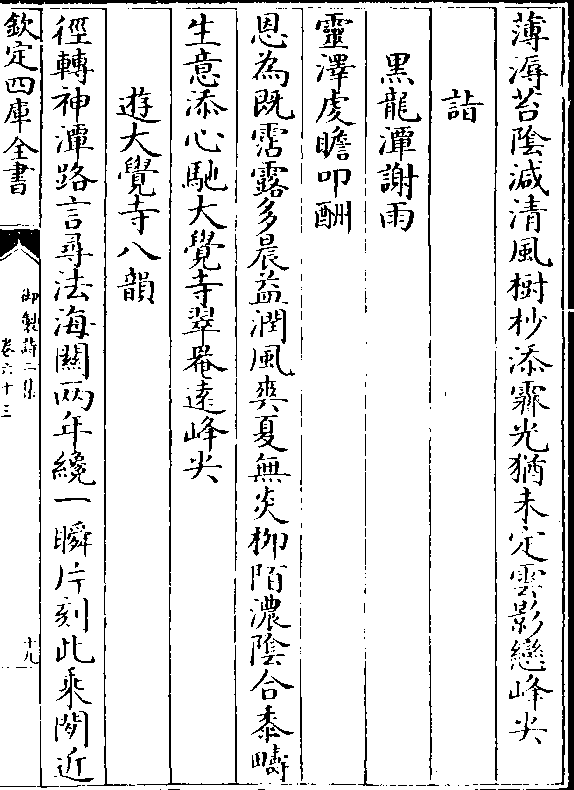 薄溽苔陰減清風樹杪添霏光猶未定雲影戀峰尖
詣
黑龍潭謝雨
靈澤虔瞻叩酬
恩為既霑露多晨益潤風爽夏無炎柳陌濃陰合黍疇
生意添心馳大覺寺翠罨逺峰尖
遊大覺寺八韻
徑轉神潭路言尋法海關兩年纔一瞬片刻此乘閒近
欽定四庫全書
御製詩二集
卷六十三
十九